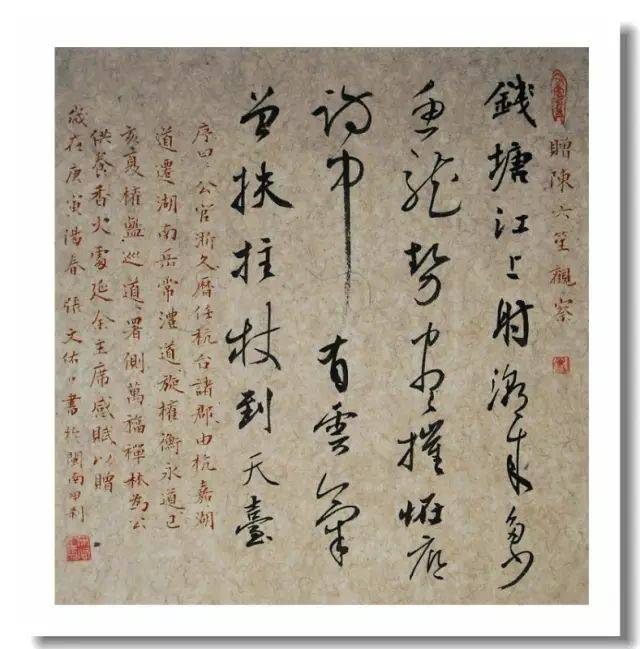 贈陳六笙觀察
錢塘江上射潮來多少
魚龍勢盡摧恠底
詩中有雲氣
曾扶拄杖到天臺
序曰公官浙久曆任杭台諸郡由杭嘉湖
道遷湖南岳常澧道旋權衡永道己
亥夏權鹽巡道署側萬福禪林為公
供養香火處延余主席感賦以贈
歲在庚寅春張文佑書於閩南